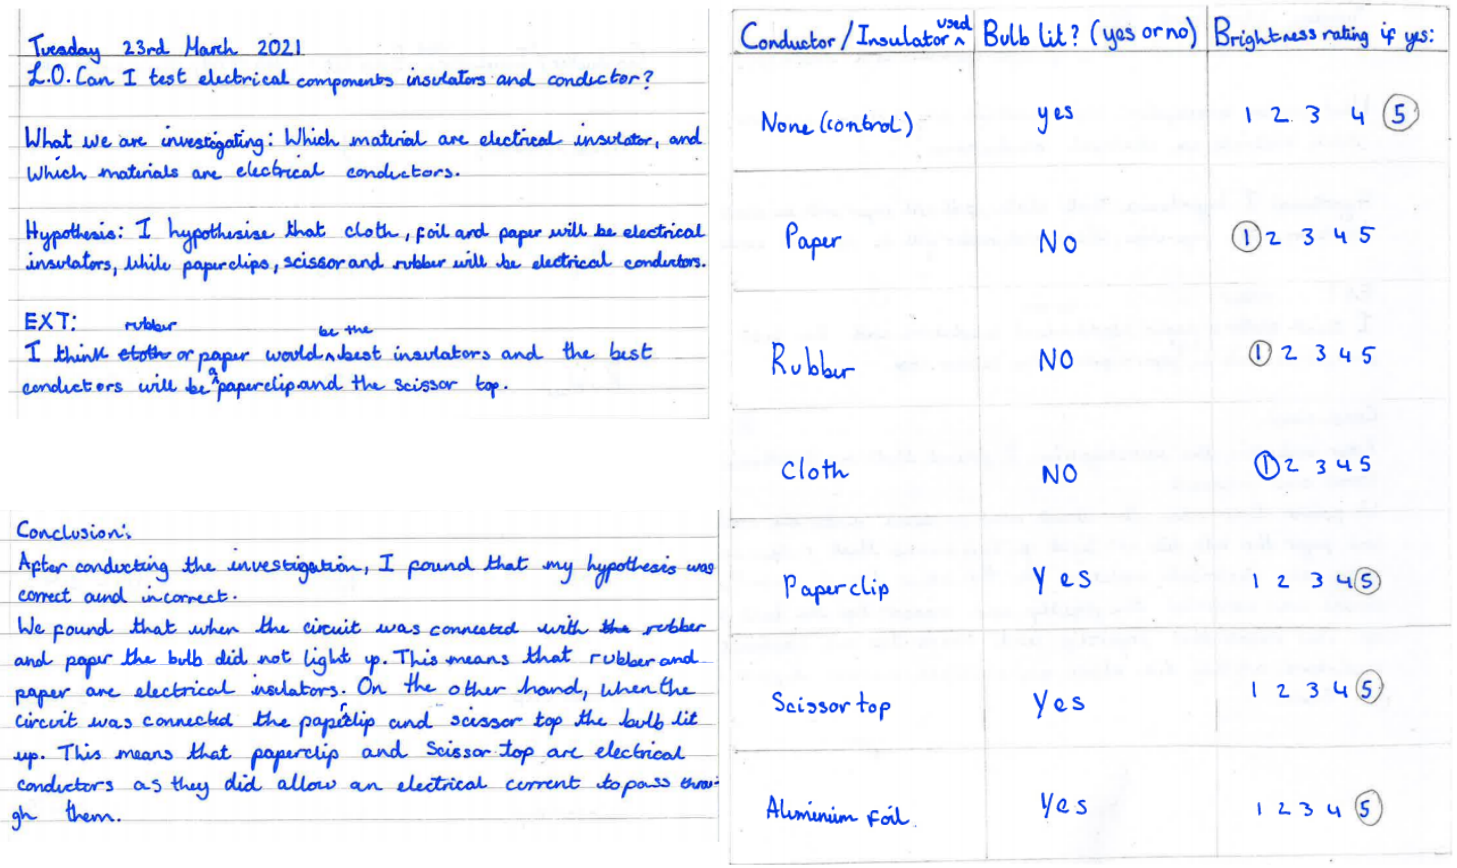 Tuesday 23rd March 2021
L.O. Can I test electrical components insulators and conductor?
What we are investigating: Which material are electrical insulator, and
which materials are electrical conductors.
Hypothesis: I hypothesise that cloth, foil and paper will be electrical
insulators, while paperclips, scissor and rubber will be electrical conductors.
EXT:
I think cloth rubber or paper would be the best insulators and the best
conductors will be a paperclip and the scissor top.
Conclusion:
After conducting the investigation, I found that my hypothesis was
correct and incorrect.
We found that when the circuit was connected with the rubber
and paper the bulb did not light up. This means that rubber and
paper are electrical insulators. On the other hand, when the
circuit was connected the paperclip and scissor top the bulb lit
up. This means that paperclip and Scissor top are electrical
conductors as they did allow an electrical current to pass throu-
gh them.
Conductor / Insulator used Bulb lit? (yes or no) Brightness rating if yes:
None (control) yes 1 2 3 4 5
Paper NO 1 2 3 4 5
Rubber NO 1 2 3 4 5
Cloth NO 1 2 3 4 5
Paperclip Yes 1 2 3 4 5
Scissor top Yes 1 2 3 4 5
Aluminium foil Yes 1 2 3 4 5